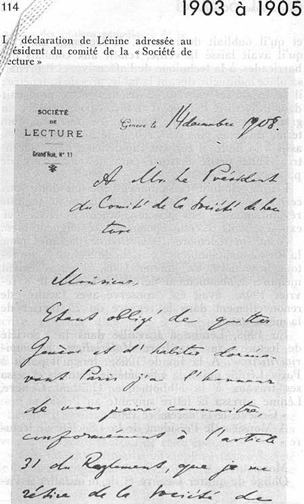 114
1903 à 1905
La déclaration de Lénine adressée au
président du comité de la « Société de
lecture »
SOCIÉTÉ
DE
LECTURE
Grand'Rue, N° 11
Genève le 14 décembre 1908.
A Mr. Le Président
du Comité de la Société de Lec
ture
Monsieur,
Etant obligé de quitter
Genève et d'habiter dorena
vant Paris j'ai l'honneur
de vous faire connaitre,
conformément à l'article
31 du Reglement, que je me
rétire de la Société de